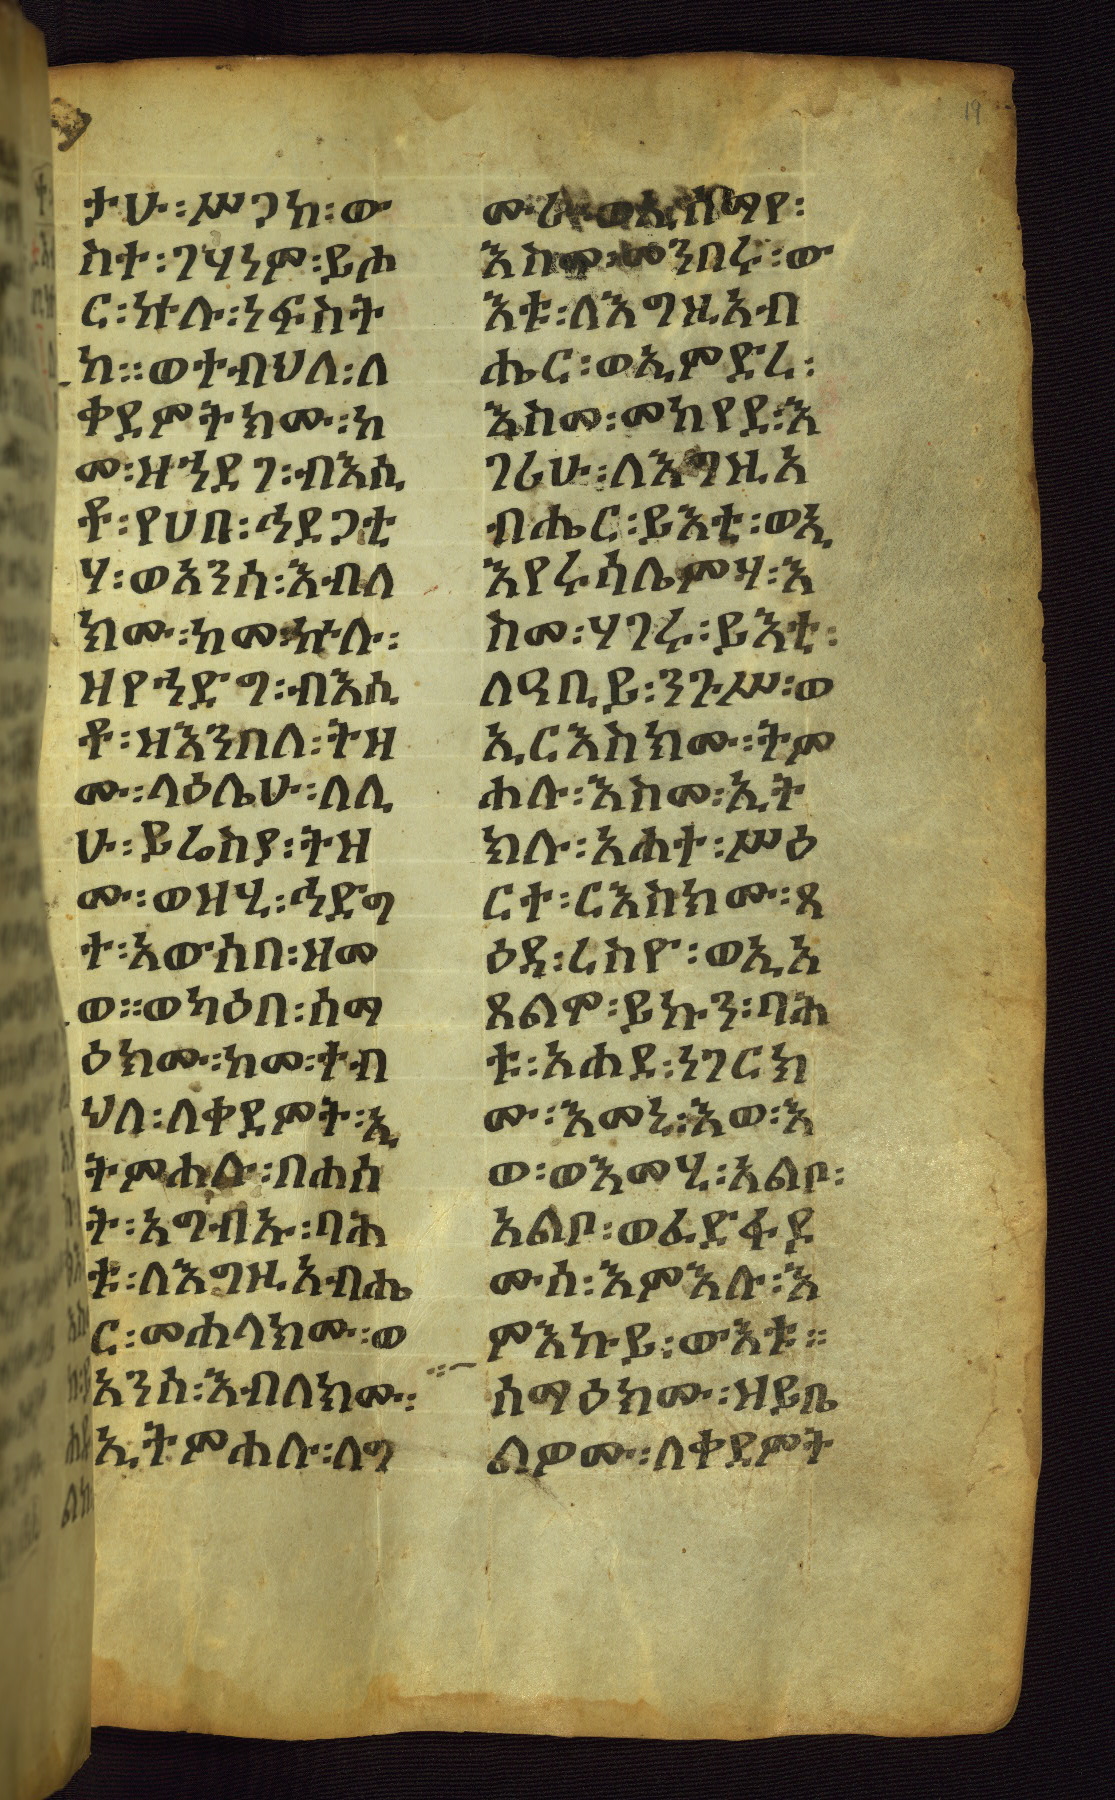 19
ታሁ፡ሥጋከ፡ው
ስተ፡ገሃነም፡ይሑ
ር፡ኵሉ፡ነፍስት
ከ፡፡ወተብህለ፡ለ
ቀደምትክሙ፡ከ
መ፡ዘኀደገ፡ብእሲ
ቶ፡የሀቡ፡ኅደጋቲ
ሃ፡ወአንሰ፡እብለ
ክሙ፡ከመ፡ኵሉ፡
ዘየኀድግ፡ብእሲ
ቶ፡ዘእንበለ፡ትዘ
ሙ፡ላዕሌሁ፡ለሊ
ሁ፡ይሬስያ፡ትዘ
ሙ፡ወዘሂ፡ኅድግ
ተ፡አውሰበ፡ዘመ
ወ፡፡ወካዕበ፡ሰማ
ዕክሙ፡ከመ፡ተብ
ህለ፡ለቀደምት፡ኢ
ትምሐሉ፡በሐሰ
ት፡አግብኡ፡ባሕ
ቱ፡ለእግዚአብሔ
ር፡መሐላክሙ፡ወ
አንሰ፡እብለክሙ፡
ኢትምሐሉ፡ለግ
ሙራ፡ወኢበሰማየ፡
እስመ፡መንበሩ፡ው
እቱ፡ለእግዚአብ
ሔር፡ወኢምድረ፡
እስመ፡መከየደ፡እ
ገሪሁ፡ለእግዚአ
ብሔር፡ይእቲ፡ወኢ
እየሩሳሌምሃ፡እ
ስመ፡ሃገሩ፡ይእቲ፡
ለዓቢይ፡ንጉሥ፡ወ
ኢርእስክሙ፡ትም
ሐሉ፡እስመ፡ኢት
ክሉ፡አሐተ፡ሥዕ
ርተ፡ርእስክሙ፡ጸ
ዕዳ፡ረስዮ፡ወኢአ
ጸልሞ፡ይኩን፡ባሕ
ቱ፡አሐደ፡ነገርክ
ሙ፡እመኒ፡እወ፡እ
ወ፡ወእመሂ፡አልቦ፡
አልቦ፡ወፈድፋደ
ሙሰ፡እምእሉ፡እ
ምእኩይ፡ውእቱ፡፡
ሰማዕክሙ፡ዘይቤ
ልዎሙ፡ለቀደምት